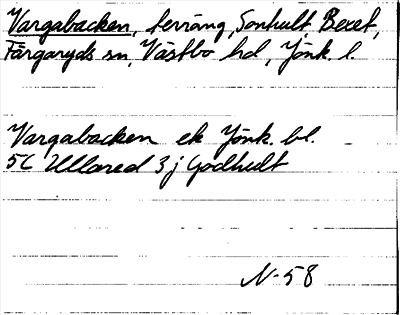 Vargabacken, terräng, Sonhult Beret,
Färgaryds sn, Västbo hd, Jönk. l.
Vargabacken ek Jönk. bl.
5C Ullared 3j Godhult
N-58